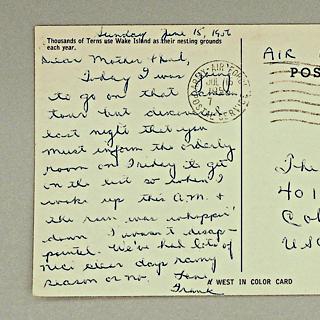 Sunday June 15, 1956
Thousands of Terns use Wake Island as their nesting grounds
each year.
Dear Mother & Dad,
Today I was going
to go on that
tour but discovered
last night that you
must inform the orderly
room on Friday to get
on the list so when I
woke up this A.M. &
the rain was whoppin'
down I wasn't disap-
pointed. We've had lots of
nice clear days rainy
season or no. Love,
Frank
ARMY-AIR FORCE
POSTAL SERVICE
AIR
POS
The
401
Col
USA
WEST IN COLOR CARD